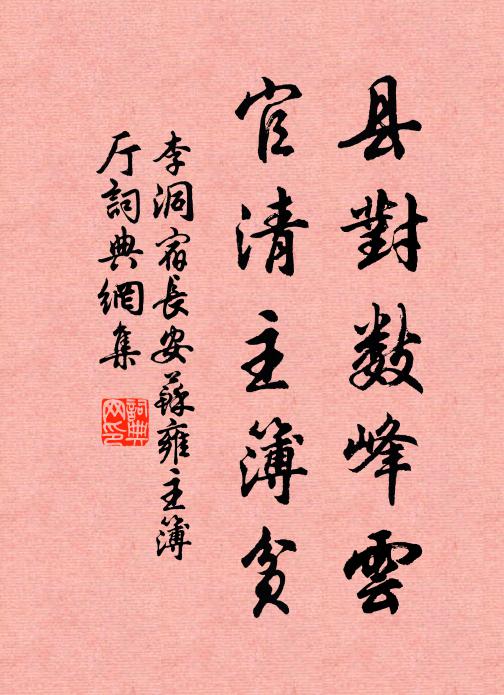 县對数峰雲
官清主簿貧
李洞宿長安蘇雍主簿
厅詞典網集
詞典
网印